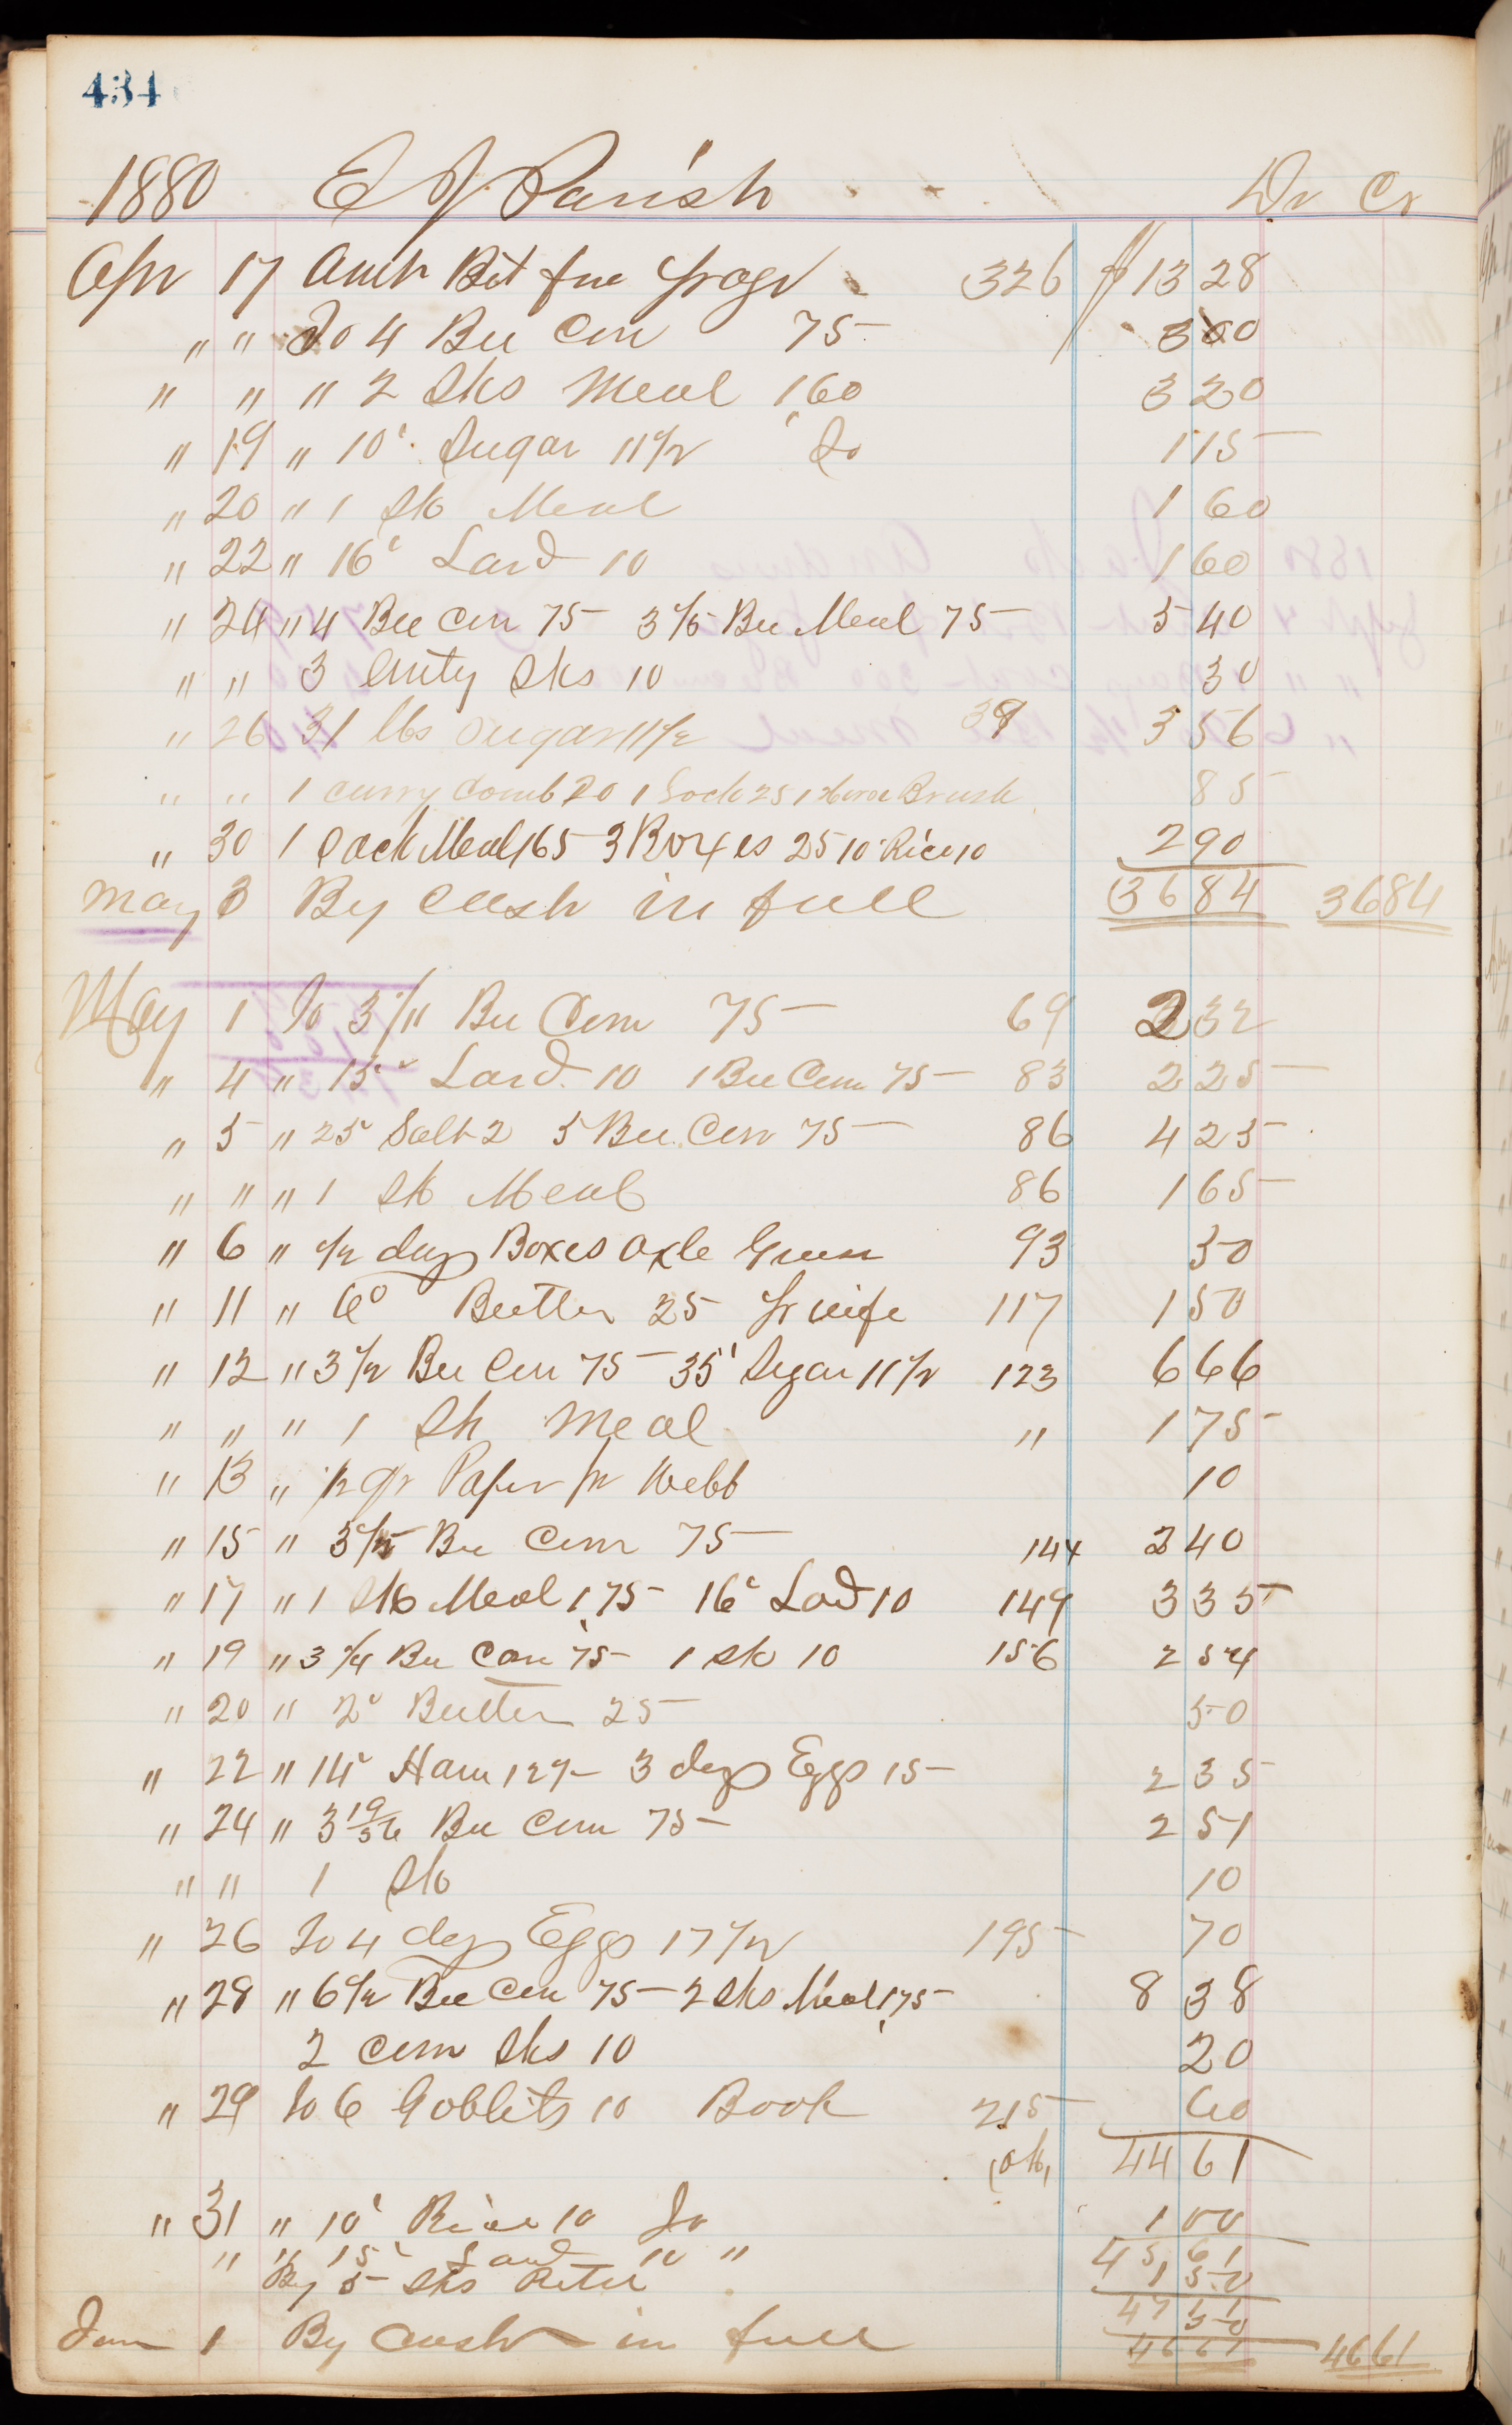 434
1880 E J Parish Dr Cr
Apr 17 Amt Bt fm page 326 $13 28
" " To 4 Bu Corn 75 3 00
" " " 2 Sks Meal 1,60 3 20
" 19 " 10' Sugar 11 1/2 Jo 1 15
" 20 " 1 Sk Meal 1 60
" 22 " 16' Lard 10 1 60
" 24 " 4 Bu Corn 75 3 1/5 Bu Meal 75 5 40
" " 3 Emty Sks 10 30
" 26 31 lbs Sugar 11 1/2 39 3 56
" " 1 curry Comb 20 1 Lock 25 1 Horse Brush 85
" 30 1 Sack Meal 165 3 Boxes 25 10 Rice 10 2 90
36 84
May 3 By Cash in full 3684
May 1 To 3 1/11 Bu Corn 75 69 2 32
" 4 " 15' Lard 10 1 Bu Corn 75 83 2 25
" 5 " 25' Salt 2 5 Bu Corn 75 86 4 25
" " " 1 Sk Meal 86 1 65
" 6 " 1/2 doz Boxes Axle Grease 93 50
" 11 " 6' Butter 25 pr wife 117 1 50
" 12 " 3 1/2 Bu Corn 75 35' Sugar 11 1/2 123 6 66
" " " 1 Sk Meal " 1 75
" 13 " 1/2 qr Paper pr Webb 10
" 15 " 3 1/5 Bu Corn 75 144 2 40
" 17 " 1 Sk Meal 1,75 16' Lard 10 149 3 35
" 19 " 3 1/4 Bu Corn 75 1 Sk 10 156 2 54
" 20 " 2' Butter 25 50
" 22 " 14' Ham 12 1/2 3 doz Eggs 15 2 35
" 24 " 3 19/56 Bu Corn 75 2 51
" " 1 Sk 10
" 26 To 4 doz Eggs 17 1/2 195 70
" 28 " 6 1/2 Bu Corn 75 2 Sks Meal 1,75 8 38
2 Corn Sks 10 20
" 29 To 6 Goblets 10 Book 215 60
Ok, 44 61
" 31 " 10' Rice 10 Jo 1 00
45 61
" " 15' Lard 10 " 1 50
47 11
By 5 Sks Retd 50
46 61
Jun 1 By Cash in full 4661